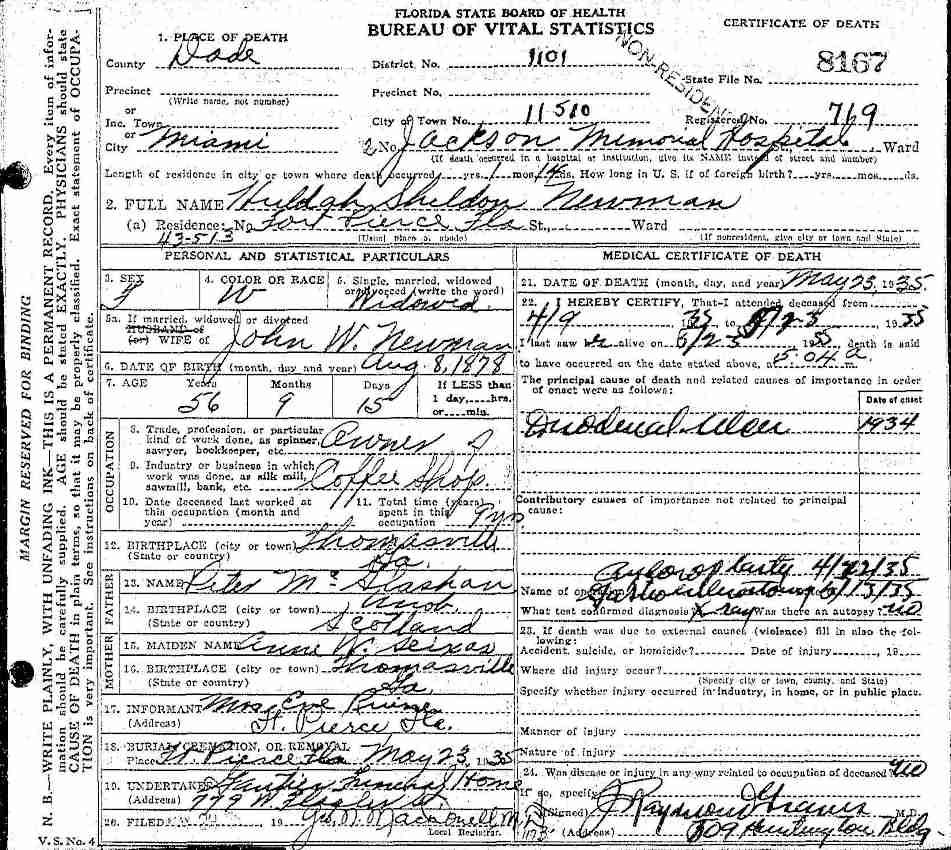 FLORIDA STATE BOARD OF HEALTH
BUREAU OF VITAL STATISTICS
CERTIFICATE OF DEATH
1. PLACE OF DEATH
County Dade
District No. 1101
State File No. 8167
NON-RESIDENT
Precinct
(Write name, not number)
Precinct No.
or
Inc. Town
City or Town No. 11510
Registered No. 769
or
City Miami
2 No. Jackson Memorial Hospital, Ward
(If death occurred in a hospital or institution, give its NAME instead of street and number)
Length of residence in city or town where death occurred yrs. 1 mos. 14 ds. How long in U. S. if of foreign birth? yrs. mos. ds.
2. FULL NAME Huldah Sheldon Newman
(a) Residence: No. Fort Pierce Fla St., Ward
43-513
(Usual place of abode)
(If nonresident, give city or town and State)
PERSONAL AND STATISTICAL PARTICULARS
3. SEX F
4. COLOR OR RACE W
5. Single, married, widowed or divorced (write the word) Widowed
5a. If married, widowed or divorced
HUSBAND of
(or) WIFE of John W. Newman
6. DATE OF BIRTH (month, day and year) Aug. 8, 1878
7. AGE Years 56 Months 9 Days 15 If LESS than 1 day, hrs. or min.
OCCUPATION
8. Trade, profession, or particular kind of work done, as spinner, sawyer, bookkeeper, etc. Owner of
9. Industry or business in which work was done, as silk mill, sawmill, bank, etc. Coffee Shop
10. Date deceased last worked at this occupation (month and year)
11. Total time (years) spent in this occupation yrs
12. BIRTHPLACE (city or town) Thomasville
(State or country) Ga.
FATHER
13. NAME Peter Mc Glashan
14. BIRTHPLACE (city or town)
(State or country) Scotland
MOTHER
15. MAIDEN NAME Anne W. Seixas
16. BIRTHPLACE (city or town) Thomasville
(State or country) Ga.
17. INFORMANT Mrs. Eve
(Address) Ft. Pierce Fla.
18. BURIAL, CREMATION, OR REMOVAL
Place Ft. Pierce Fla May 23, 1935
19. UNDERTAKER Funeral Home
(Address) 779 W. Flagler St.
20. FILED 19 Geo. N. MacDonell M.D.
Local Registrar.
MEDICAL CERTIFICATE OF DEATH
21. DATE OF DEATH (month, day, and year) May 23, 1935.
22. I HEREBY CERTIFY, That I attended deceased from
4/9 1935 to 5/23 1935
I last saw her alive on 5/23 1935 death is said
to have occurred on the date stated above, at 5:04 a.
The principal cause of death and related causes of importance in order of onset were as follows:
Date of onset
Duodenal Ulcer 1934
Contributory causes of importance not related to principal cause:
4/22/35
Name of operation
What test confirmed diagnosis? X ray Was there an autopsy? no
23. If death was due to external causes (violence) fill in also the following:
Accident, suicide, or homicide? Date of injury , 19
Where did injury occur?
(Specify city or town, county, and State)
Specify whether injury occurred in industry, in home, or in public place.
Manner of injury
Nature of injury
24. Was disease or injury in any way related to occupation of deceased? no
If so, specify
(Signed) J Raymond Graves M.D.
(Address) 509 Huntington Bldg
MARGIN RESERVED FOR BINDING
N. B.—WRITE PLAINLY, WITH UNFADING INK—THIS IS A PERMANENT RECORD. Every item of information should be carefully supplied. AGE should be stated EXACTLY. PHYSICIANS should state CAUSE OF DEATH in plain terms, so that it may be properly classified. Exact statement of OCCUPATION is very important. See instructions on back of certificate.
V. S. No. 4